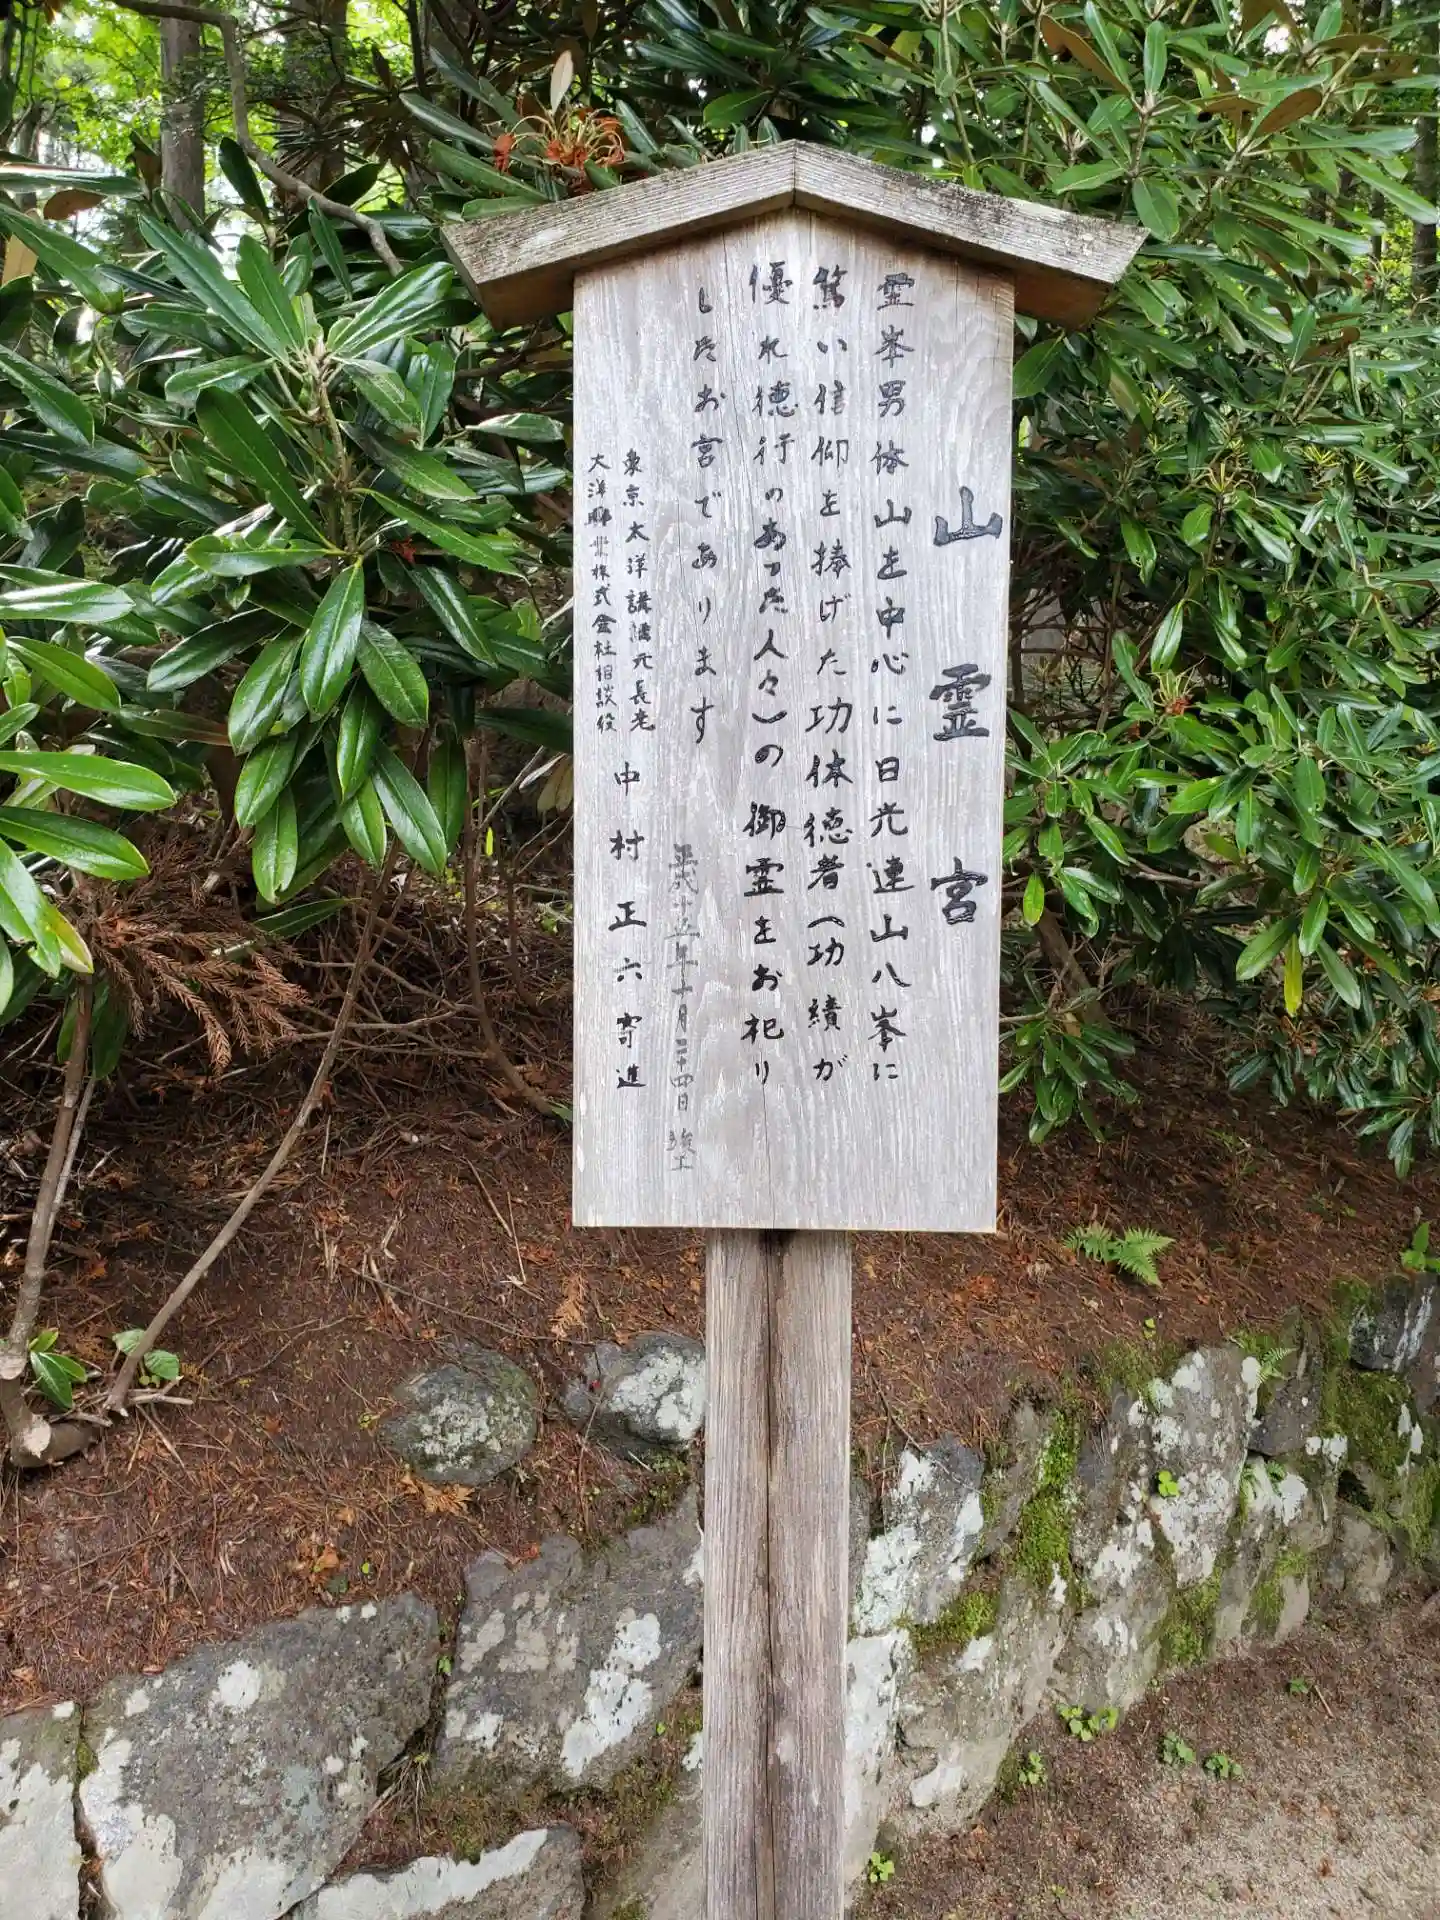 山霊宮
霊峯男体山を中心に日光連山八峯に
篤い信仰を捧げた功体徳者(功績が
優れ徳行のあった人々)の御霊をお祀り
したお宮であります
平成十五年十月二十四日 竣工
東京太洋講講元長老
大洋興業株式会社相談役
中村正六寄進